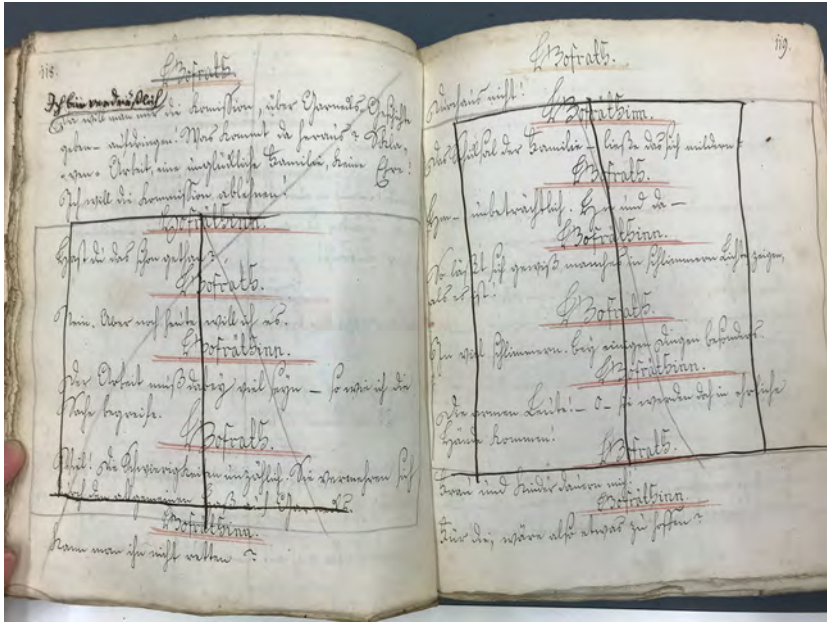 118.
Hofrath.
Ich bin verdrüßlich
Da will man mir die Komission, über Tharnals
geben – aufdringen! Was kommt da heraus?
Arbeit, eine unglükliche Familie, keine Ehre!
Ich will die Kommission ablehnen!
Hofräthinn.
Hast du das schon gethan?
Hofrath.
Nein. Aber noch heute will ich es.
Hofräthinn.
Der Arbeit muß dabey viel seyn – so wie ich die
Sache begreife.
Hofrath.
Viel! Die Schwierigkeiten unzählich. Sie vermehren sich
durch den allgemeinen Haß auf Tharnals.
Hofräthinn.
Kann man ihn nicht retten?
119.
Hofrath.
Durchaus nicht!
Hofräthinn.
Das Schiksal der Familie – ließe das sich mildern?
Hofrath.
Hm – unbeträchtlich. Hie und da –
Hofräthinn.
So läßt sich gewiß manches in schlimmern Lichte zeigen,
als es ist.
Hofrath.
In viel schlimmern. bey einigen Dingen besonders.
Hofräthinn.
Die armen Leute! – O – sie werden doch in ehrliche
Hände kommen!
Hofrath.
Frau und Kinder dauern mich.
Hofräthinn.
Für die, wäre also etwas zu hoffen?